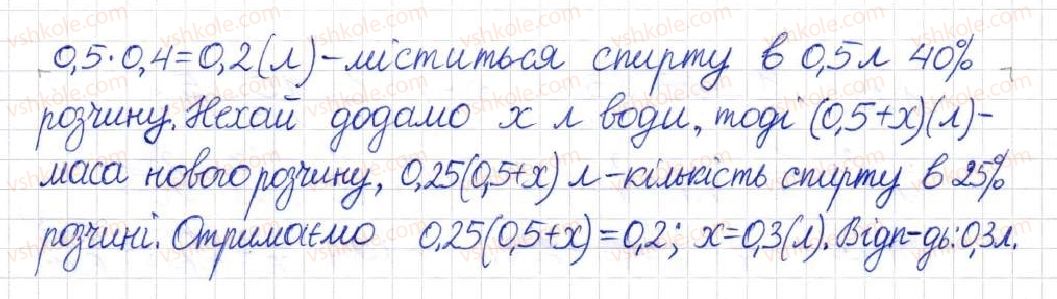 0,5·0,4=0,2(л)–міститься спирту в 0,5л 40%
розчину. Нехай додамо х л води, тоді (0,5+х)(л)–
маса нового розчину, 0,25(0,5+х) л–кількість спирту в 25%
розчині. Отримаємо 0,25(0,5+х)=0,2; х=0,3(л). Відп-дь: 0,3л.